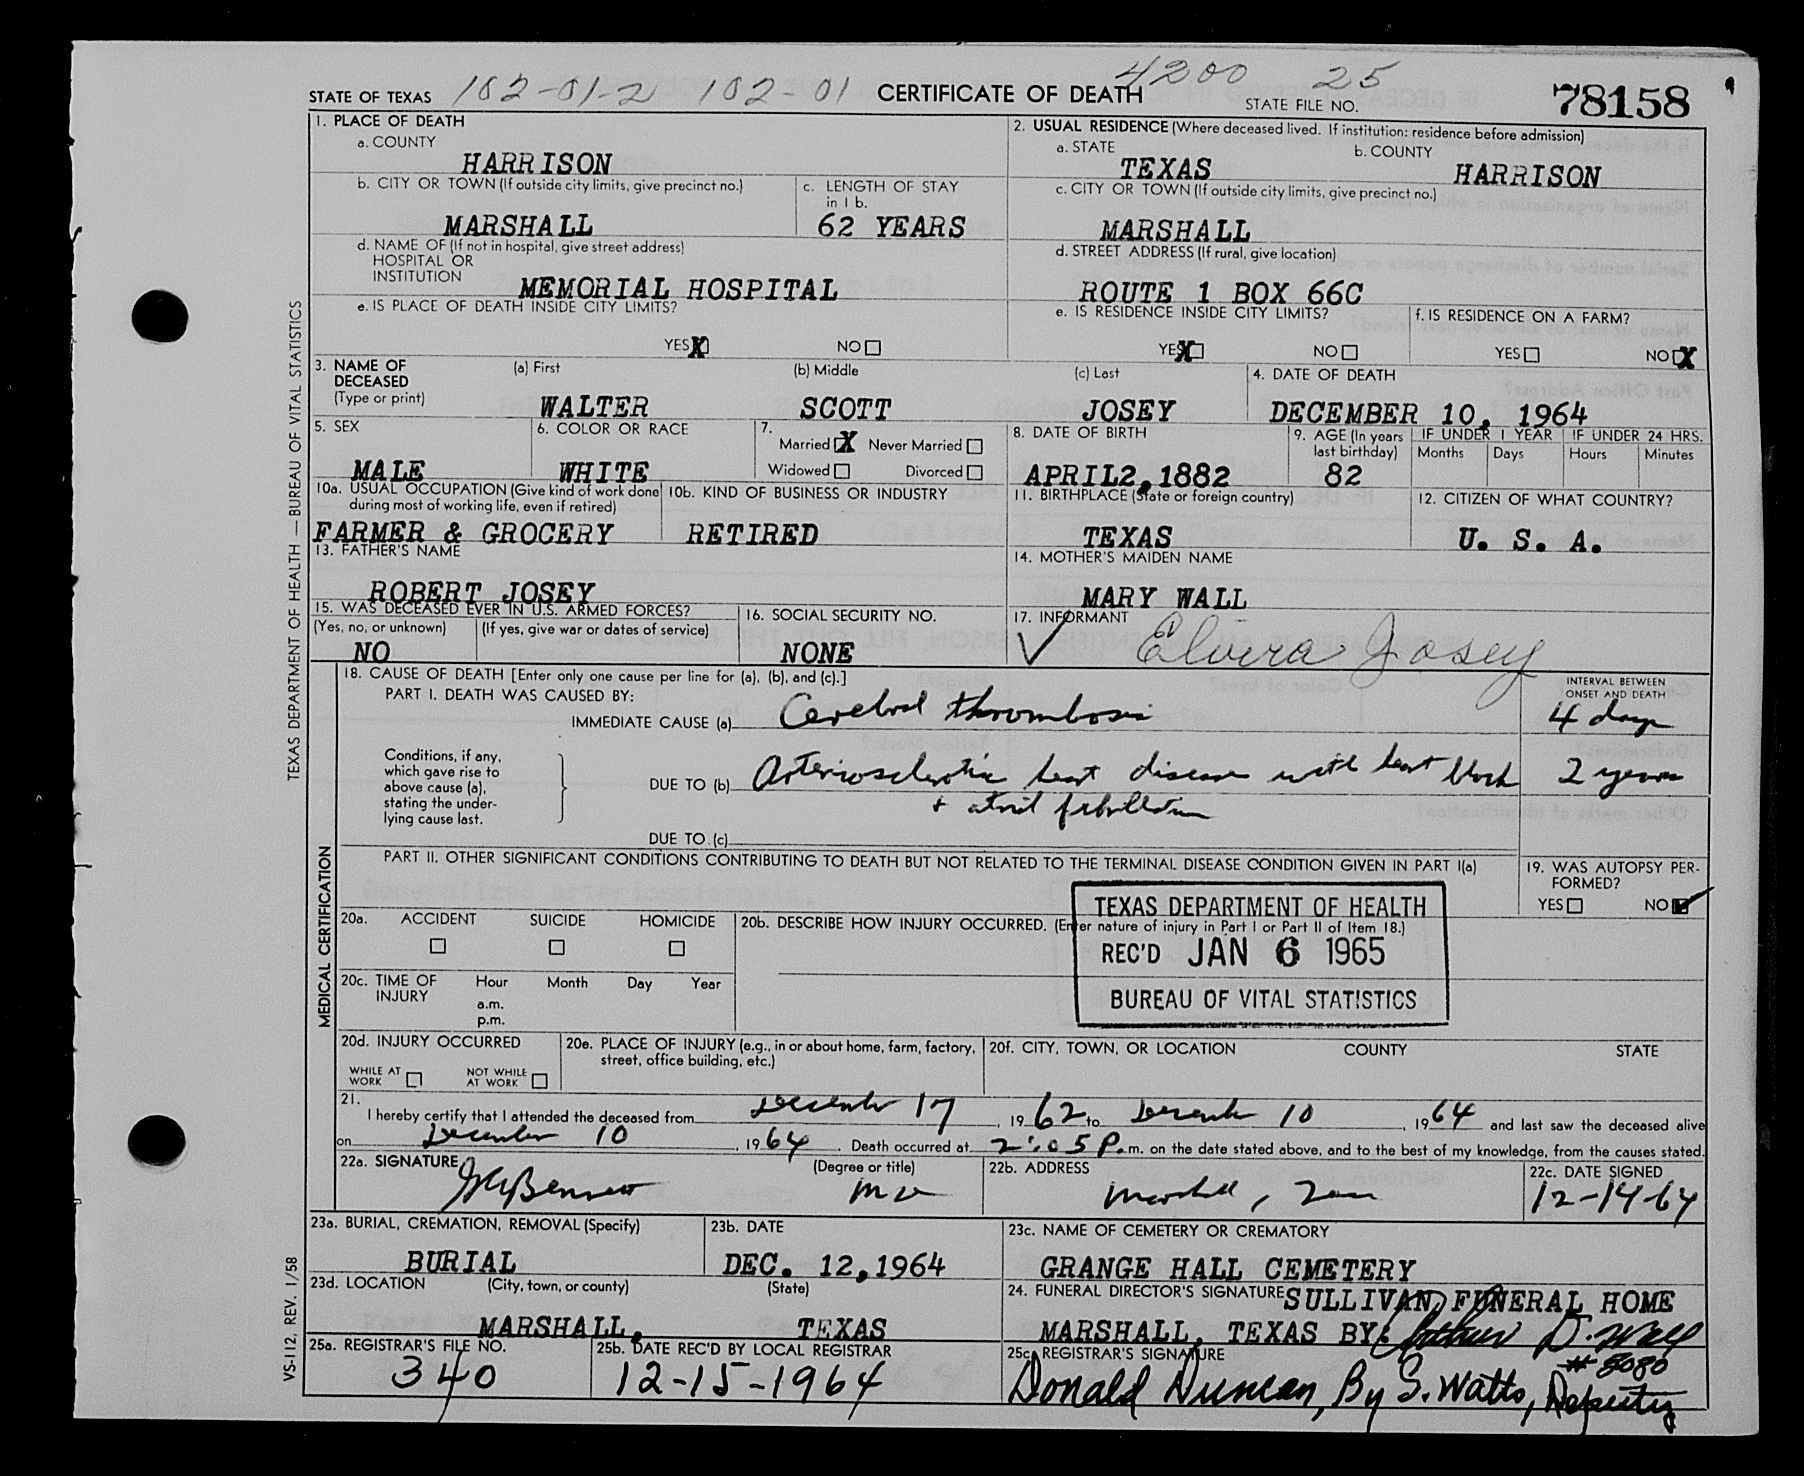 STATE OF TEXAS 102-01-2 102-01 CERTIFICATE OF DEATH 4200 25 STATE FILE NO. 78158
1. PLACE OF DEATH
a. COUNTY
HARRISON
b. CITY OR TOWN (If outside city limits, give precinct no.)
MARSHALL
c. LENGTH OF STAY in 1 b.
62 YEARS
d. NAME OF (If not in hospital, give street address)
HOSPITAL OR
INSTITUTION
MEMORIAL HOSPITAL
e. IS PLACE OF DEATH INSIDE CITY LIMITS?
YES X NO
2. USUAL RESIDENCE (Where deceased lived. If institution: residence before admission)
a. STATE
TEXAS
b. COUNTY
HARRISON
c. CITY OR TOWN (If outside city limits, give precinct no.)
MARSHALL
d. STREET ADDRESS (If rural, give location)
ROUTE 1 BOX 66C
e. IS RESIDENCE INSIDE CITY LIMITS?
YES X NO
f. IS RESIDENCE ON A FARM?
YES NO X
3. NAME OF
DECEASED
(Type or print)
(a) First
WALTER
(b) Middle
SCOTT
(c) Last
JOSEY
4. DATE OF DEATH
DECEMBER 10, 1964
5. SEX
MALE
6. COLOR OR RACE
WHITE
7.
Married X Never Married
Widowed Divorced
8. DATE OF BIRTH
APRIL2,1882
9. AGE (In years
last birthday)
82
IF UNDER 1 YEAR
Months Days
IF UNDER 24 HRS.
Hours Minutes
10a. USUAL OCCUPATION (Give kind of work done
during most of working life, even if retired)
FARMER & GROCERY
10b. KIND OF BUSINESS OR INDUSTRY
RETIRED
11. BIRTHPLACE (State or foreign country)
TEXAS
12. CITIZEN OF WHAT COUNTRY?
U. S. A.
13. FATHER'S NAME
ROBERT JOSEY
14. MOTHER'S MAIDEN NAME
MARY WALL
15. WAS DECEASED EVER IN U.S. ARMED FORCES?
(Yes, no, or unknown)
NO
(If yes, give war or dates of service)
16. SOCIAL SECURITY NO.
NONE
17. INFORMANT
Elvira Josey
18. CAUSE OF DEATH [Enter only one cause per line for (a), (b), and (c).]
PART I. DEATH WAS CAUSED BY:
IMMEDIATE CAUSE (a) Cerebral thrombosis
INTERVAL BETWEEN
ONSET AND DEATH
4 days
Conditions, if any,
which gave rise to
above cause (a),
stating the under-
lying cause last.
DUE TO (b) Arteriosclerotic heart disease with heart block
+ atrial fibrillation
2 years
DUE TO (c)
PART II. OTHER SIGNIFICANT CONDITIONS CONTRIBUTING TO DEATH BUT NOT RELATED TO THE TERMINAL DISEASE CONDITION GIVEN IN PART I(a)
19. WAS AUTOPSY PER-
FORMED?
YES NO
20a. ACCIDENT SUICIDE HOMICIDE
20b. DESCRIBE HOW INJURY OCCURRED. (Enter nature of injury in Part I or Part II of Item 18.)
TEXAS DEPARTMENT OF HEALTH
REC'D JAN 6 1965
BUREAU OF VITAL STATISTICS
20c. TIME OF
INJURY
Hour Month Day Year
a.m.
p.m.
20d. INJURY OCCURRED
WHILE AT
WORK
NOT WHILE
AT WORK
20e. PLACE OF INJURY (e.g., in or about home, farm, factory,
street, office building, etc.)
20f. CITY, TOWN, OR LOCATION COUNTY STATE
21.
I hereby certify that I attended the deceased from December 17, 1962 to December 10, 1964 and last saw the deceased alive
on December 10, 1964. Death occurred at 2:05 P.m. on the date stated above, and to the best of my knowledge, from the causes stated.
22a. SIGNATURE
Bennett
(Degree or title)
MD
22b. ADDRESS
Marshall, Texas
22c. DATE SIGNED
12-14-64
23a. BURIAL, CREMATION, REMOVAL (Specify)
BURIAL
23b. DATE
DEC. 12,1964
23c. NAME OF CEMETERY OR CREMATORY
GRANGE HALL CEMETERY
23d. LOCATION (City, town, or county) (State)
MARSHALL, TEXAS
24. FUNERAL DIRECTOR'S SIGNATURE SULLIVAN FUNERAL HOME
MARSHALL, TEXAS BY: D. Wall
# 8080
25a. REGISTRAR'S FILE NO.
340
25b. DATE REC'D BY LOCAL REGISTRAR
12-15-1964
25c. REGISTRAR'S SIGNATURE
Donald Duncan, By S. Watts, Deputy
TEXAS DEPARTMENT OF HEALTH — BUREAU OF VITAL STATISTICS
MEDICAL CERTIFICATION
VS-112, REV. 1/58